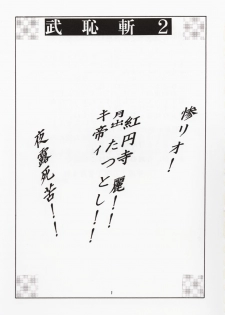 武恥斬2
惨リオ！
紅円寺 麗！！
昆たつとし！！
キ帝イ
夜露死苦！！
1